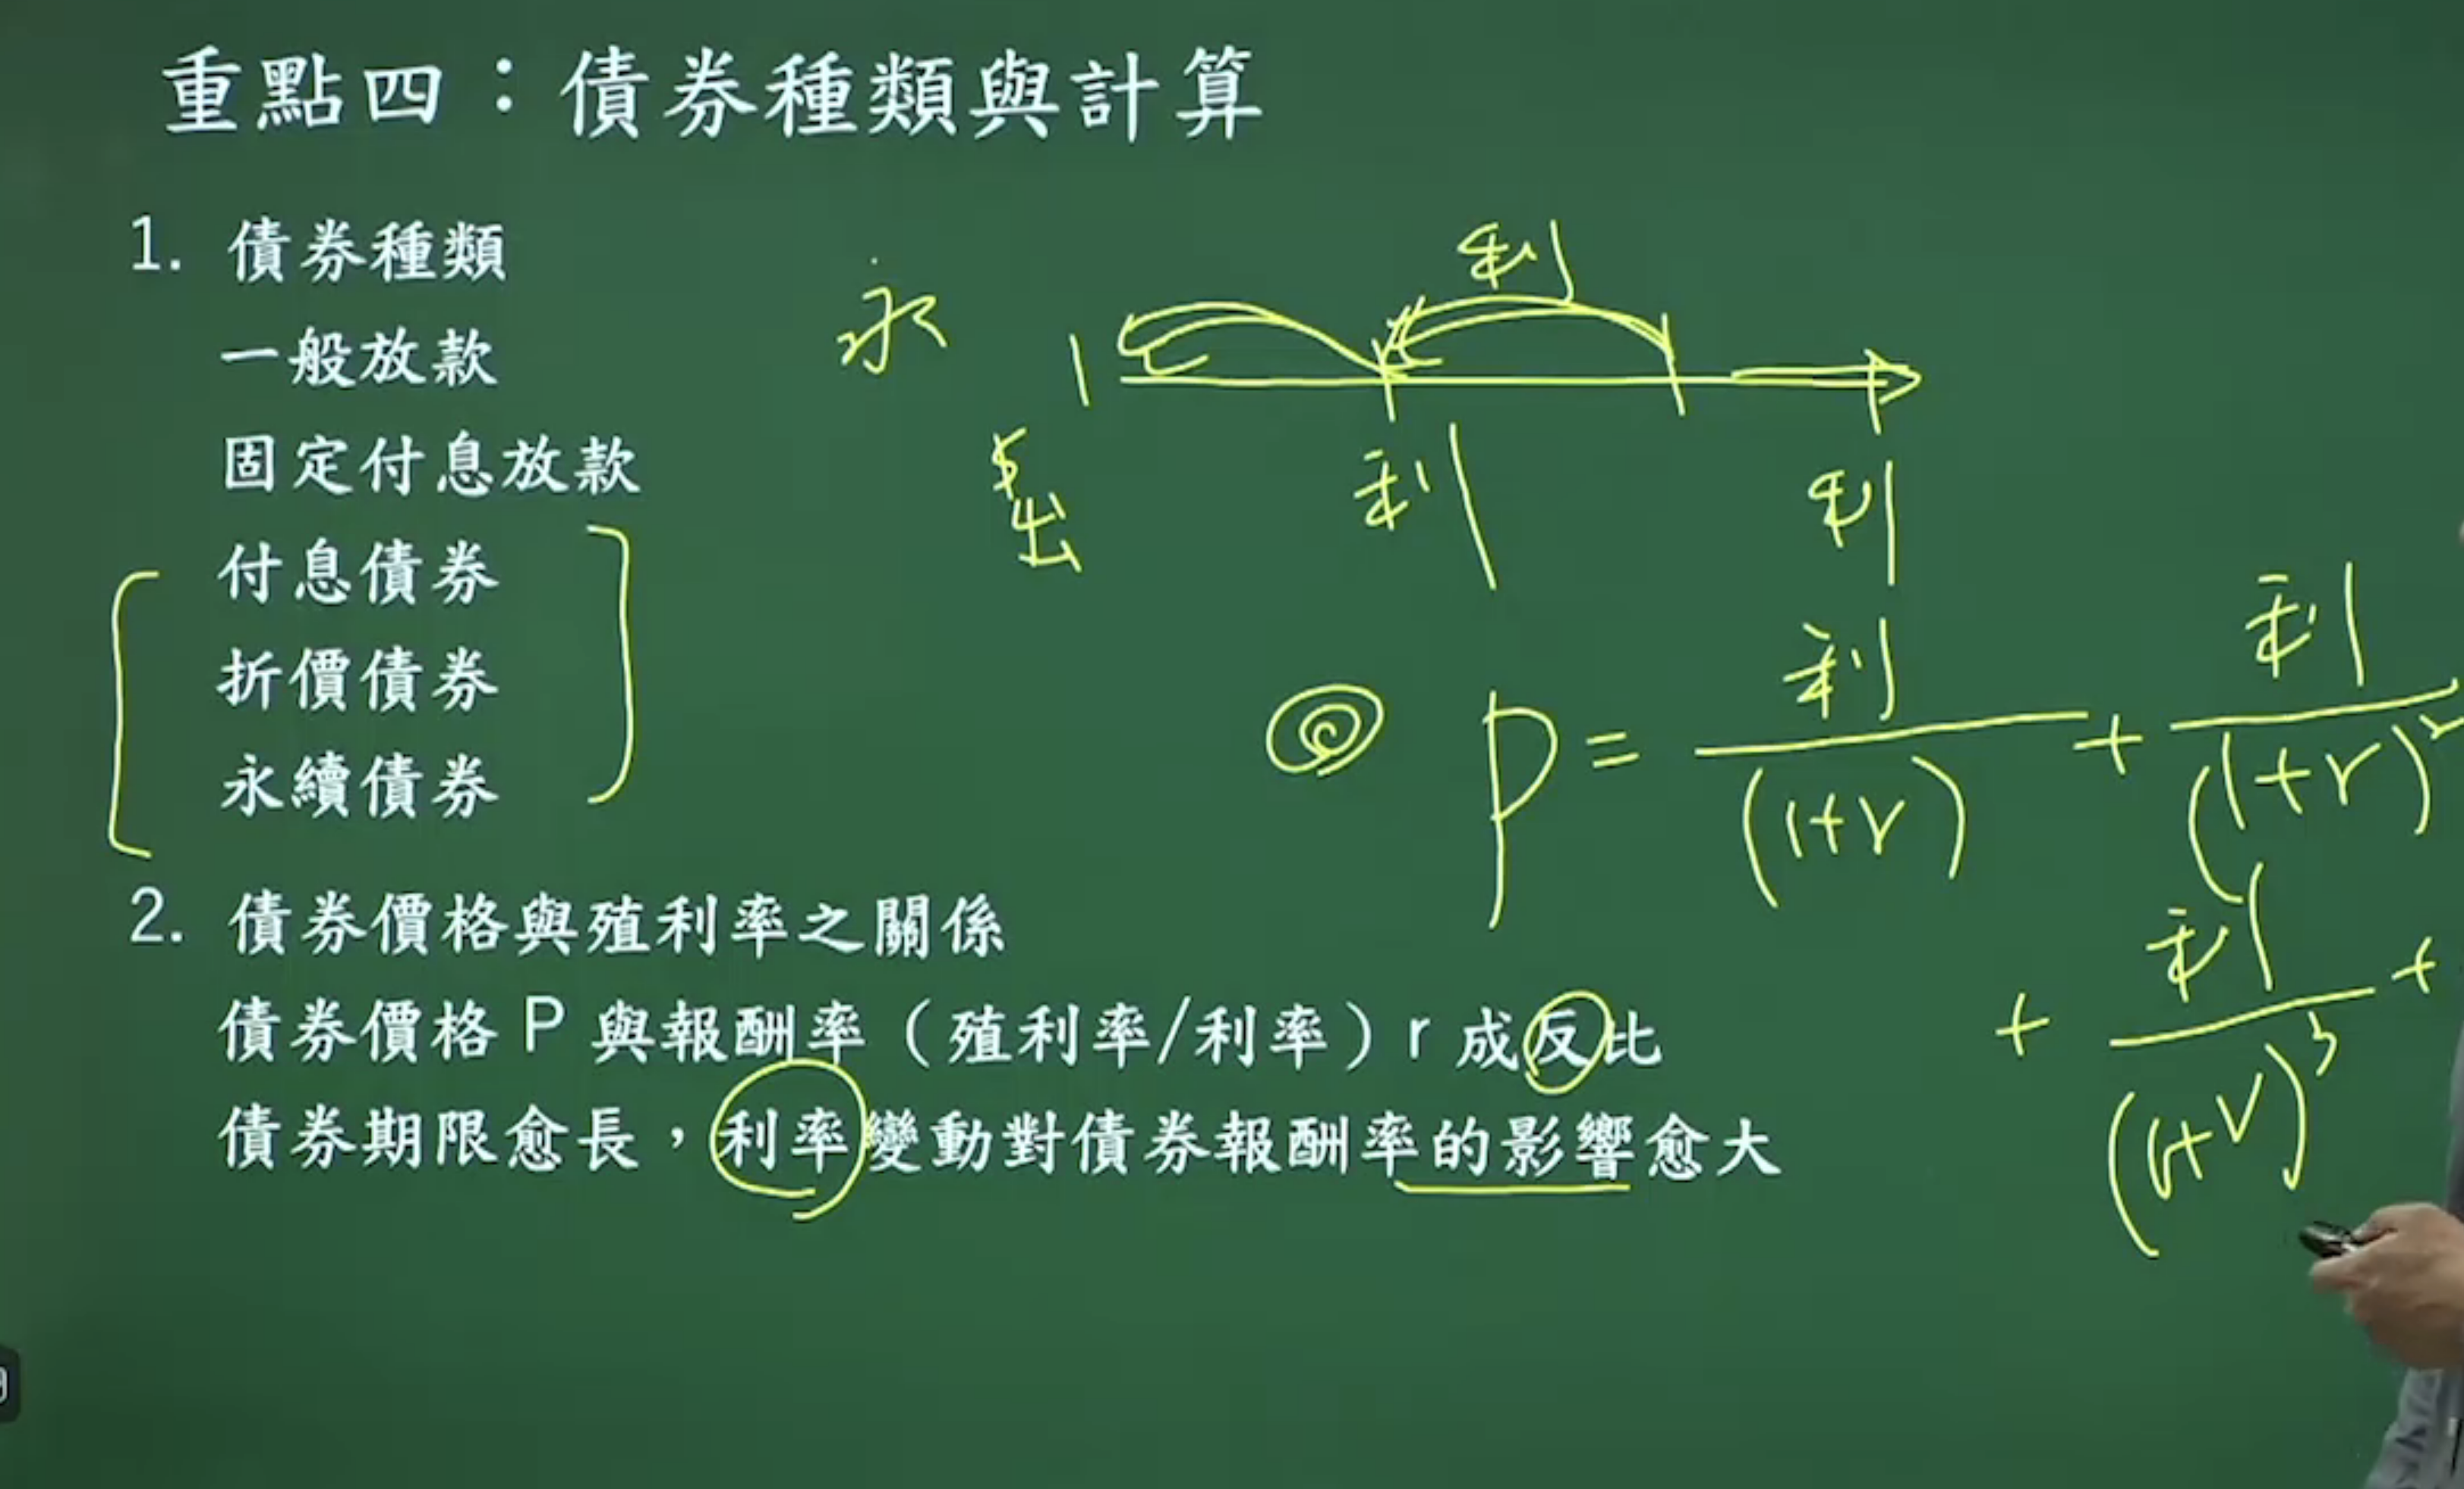 重點四：債券種類與計算
1. 債券種類
一般放款
固定付息放款
付息債券
折價債券
永續債券
2. 債券價格與殖利率之關係
債券價格 P 與報酬率（殖利率/利率）r 成反比
債券期限愈長，利率變動對債券報酬率的影響愈大
永
利
$
出
利
利
P = 利/(1+r) + 利/(1+r)²
+ 利/(1+r)³ +